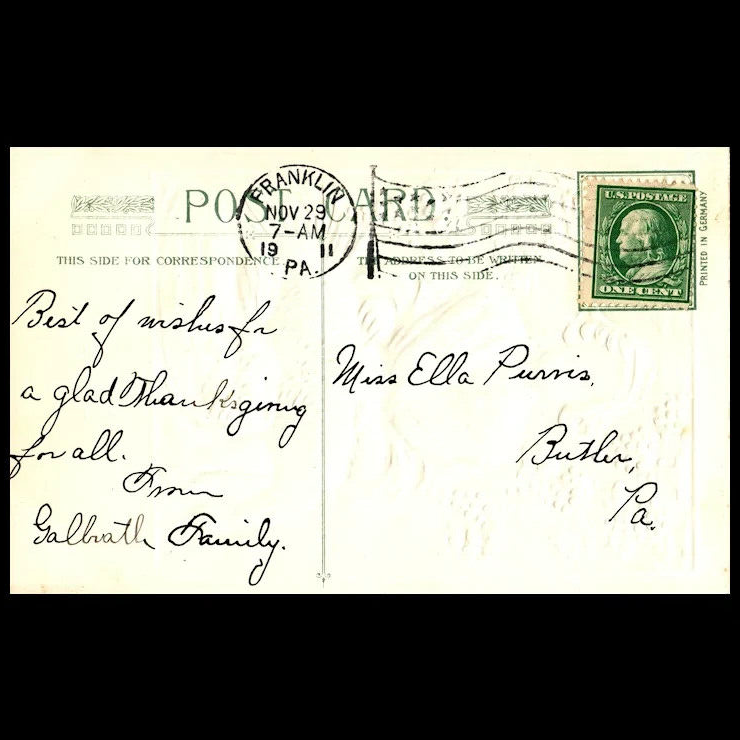 POST CARD.
FRANKLIN
NOV 29
7-AM
19 11
PA.
U.S. POSTAGE
ONE CENT
PRINTED IN GERMANY
THIS SIDE FOR CORRESPONDENCE
THE ADDRESS TO BE WRITTEN
ON THIS SIDE.
Best of wishes for
a glad Thanksgiving
for all.
From
Galbrath Family.
Miss Ella Purvis,
Butler,
Pa.